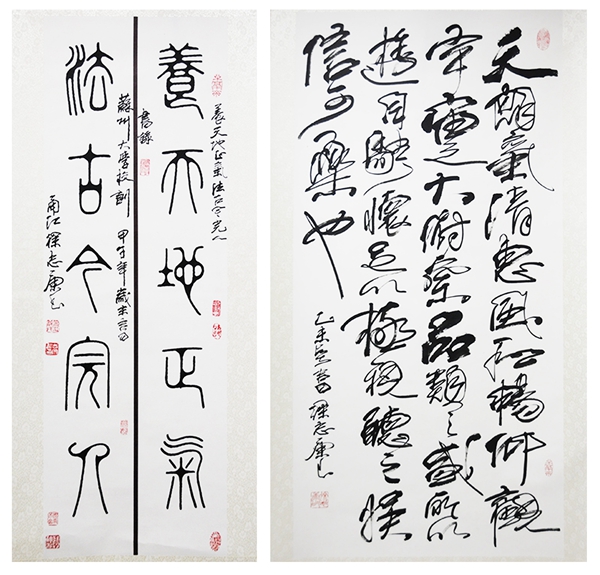 養天地正氣
養天地正氣法古今完人
書錄
蘇州大学校訓 甲午年歲末
法古今完人
甬江 志康
天朗氣清惠風和暢仰觀
宇宙之大俯察品類之盛所以
遊目騁懷足以極視聽之娛
信可樂也
乙未 志康